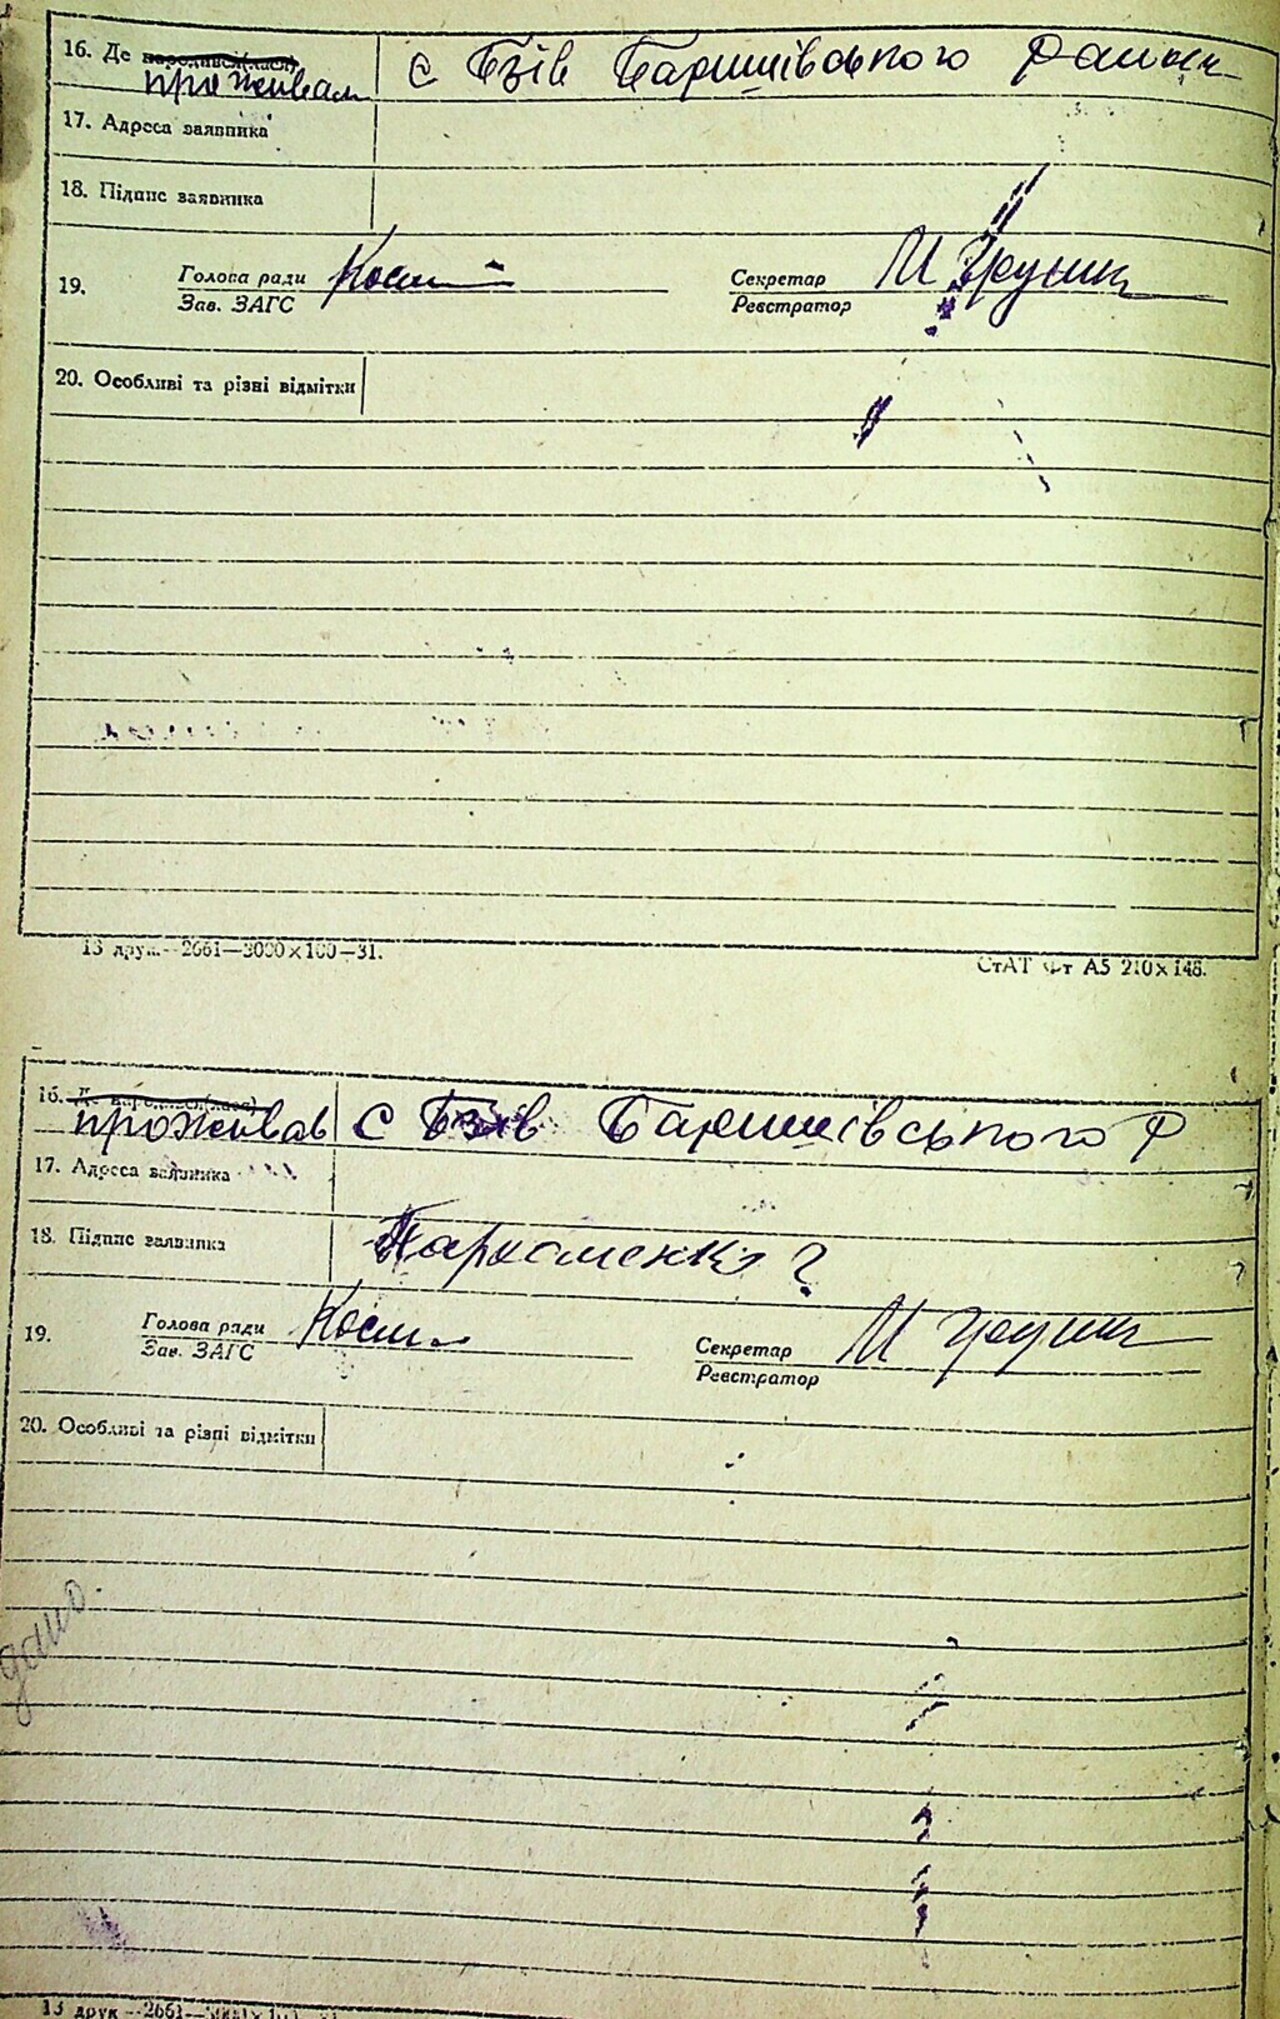 16. Де народився(лася) с Бзів Баришівського Району
проживав
17. Адреса заявника
18. Підпис заявника
19. Голова ради Секретар
Зав. ЗАГС Реєстратор
20. Особливі та різні відмітки
13 друк.—2661—3000×100—31.
СтАТ Фт А5 210×148.
16. Де народився(лася)
проживав с Бзів Баришівського Р
17. Адреса заявника
18. Підпис заявника Пархоменко ?
19. Голова ради Секретар
Зав. ЗАГС Реєстратор
20. Особливі та різні відмітки
13 друк.—2661—